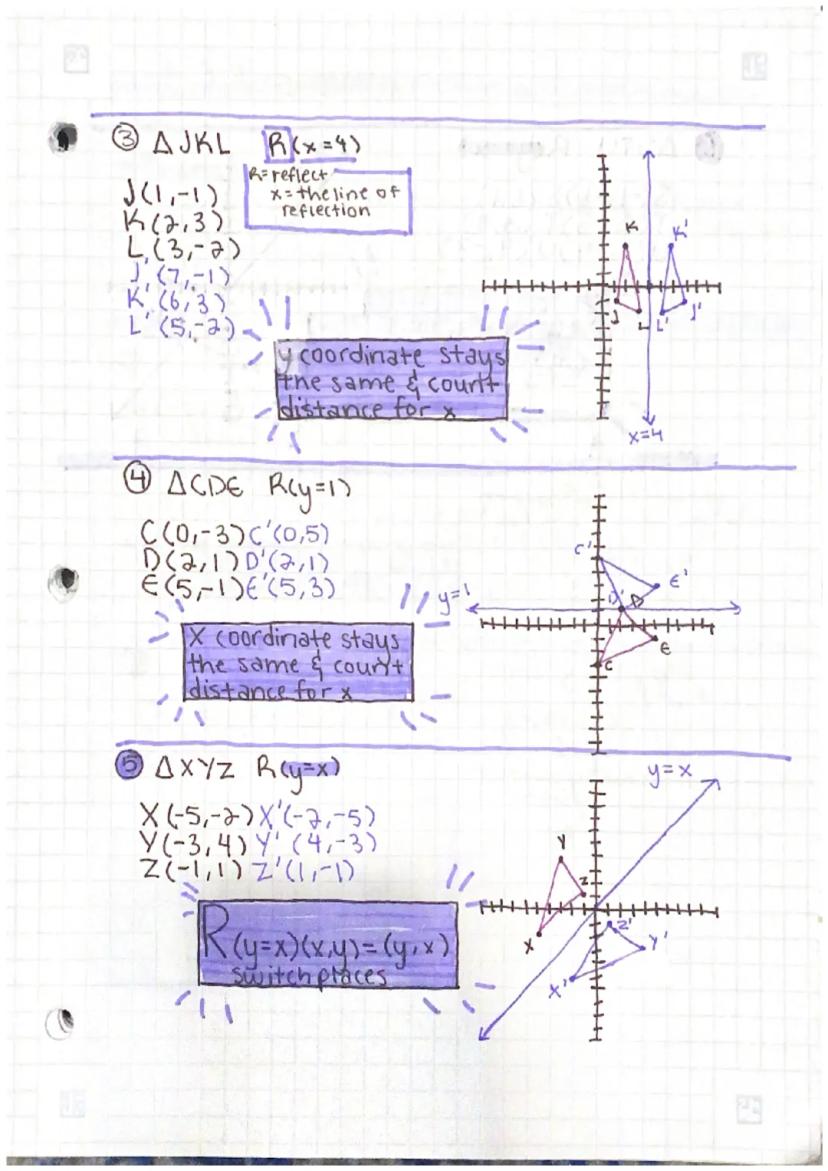 ③ △JKL R(x=4)
R=reflect
x=the line of
reflection
J(1,-1)
K(2,3)
L(3,-2)
J'(7,-1)
K'(6,3)
L'(5,-2)
y coordinate stays
the same & count
distance for x
K K'
J L L' J'
x=4
④ △CDE R(y=1)
C(0,-3) C'(0,5)
D(2,1) D'(2,1)
E(5,-1) E'(5,3)
X coordinate stays
the same & count
distance for x
C'
E'
y=1 D' D
E
C
⑤ △XYZ R(y=x)
X(-5,-2) X'(-2,-5)
Y(-3,4) Y'(4,-3)
Z(-1,1) Z'(1,-1)
R(y=x)(x,y)=(y,x)
switch places
y=x
Y
Z
X
Z'
Y'
X'